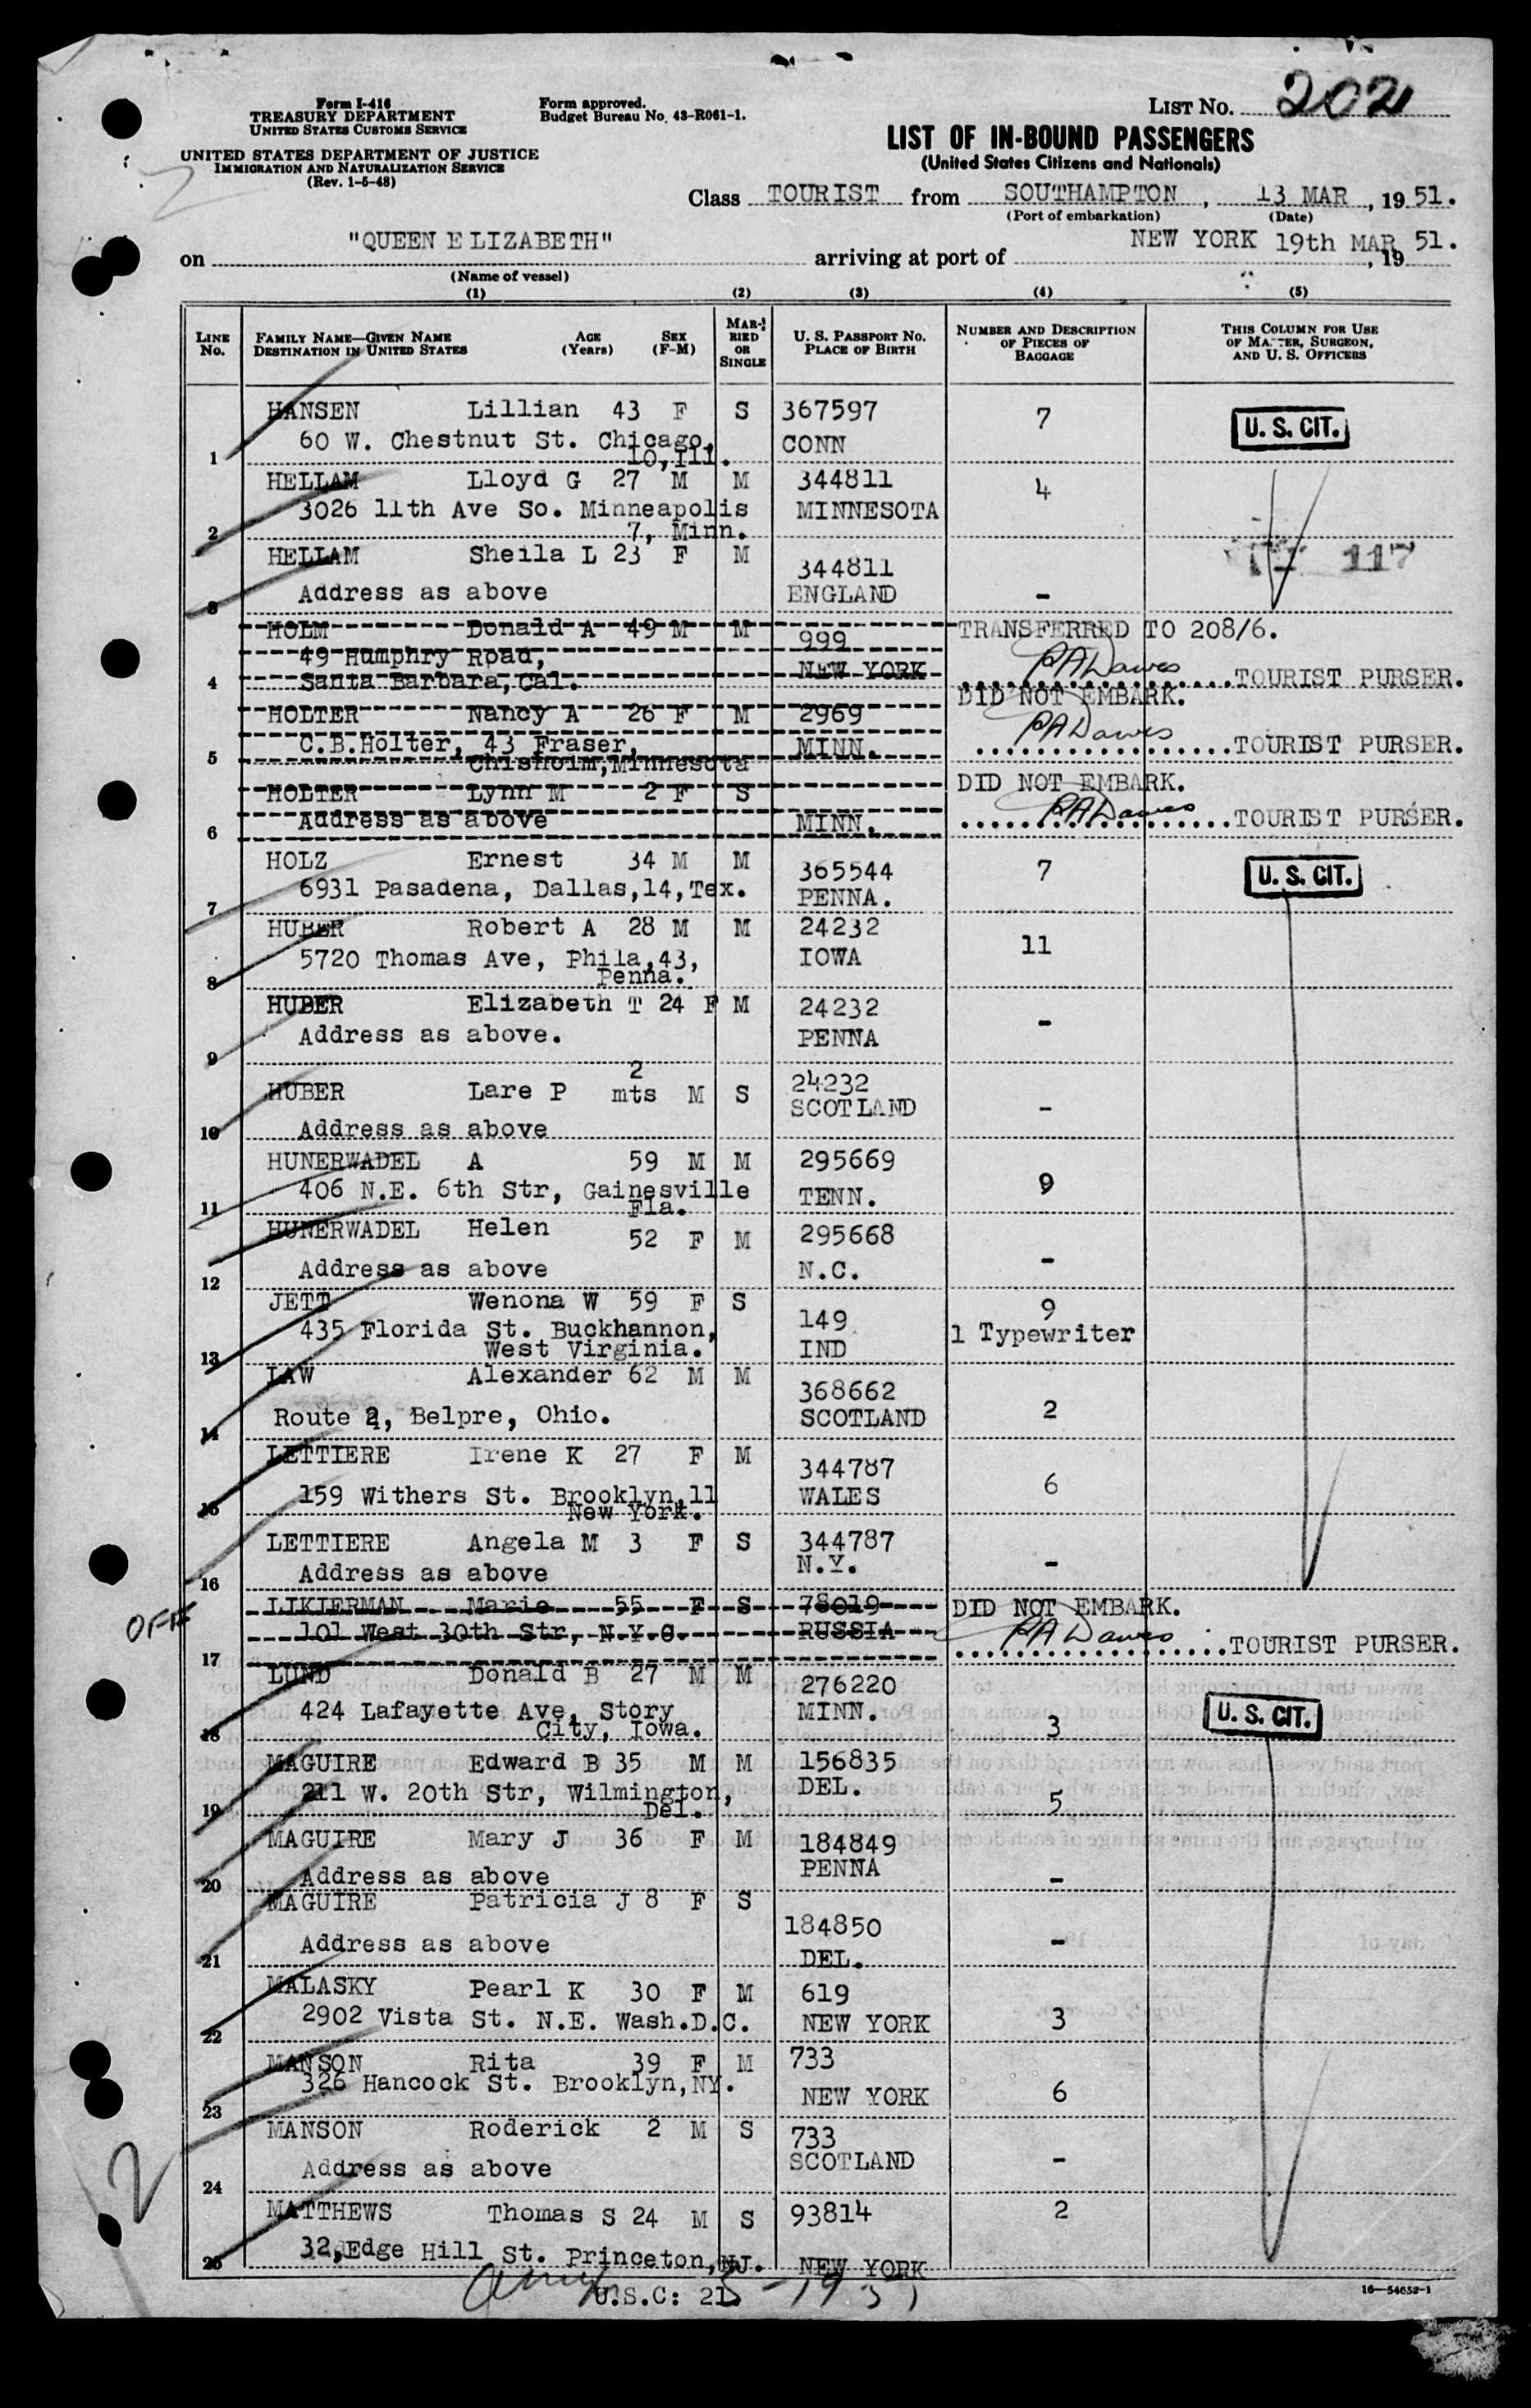 Form I-416
TREASURY DEPARTMENT
UNITED STATES CUSTOMS SERVICE
UNITED STATES DEPARTMENT OF JUSTICE
IMMIGRATION AND NATURALIZATION SERVICE
(Rev. 1-5-48)
Form approved.
Budget Bureau No. 43-R061-1.
LIST NO. 202
LIST OF IN-BOUND PASSENGERS
(United States Citizens and Nationals)
Class TOURIST from SOUTHAMPTON, 13 MAR, 1951.
(Port of embarkation) (Date)
on "QUEEN ELIZABETH" arriving at port of NEW YORK 19th MAR, 1951.
(Name of vessel)
(1) (2) (3) (4) (5)
LINE NO. FAMILY NAME—GIVEN NAME AGE SEX MARRIED OR SINGLE U. S. PASSPORT NO. NUMBER AND DESCRIPTION OF PIECES OF BAGGAGE THIS COLUMN FOR USE OF MASTER, SURGEON, AND U. S. OFFICERS
DESTINATION IN UNITED STATES (Years) (F-M) PLACE OF BIRTH
HANSEN Lillian 43 F S 367597 7 U. S. CIT.
1 60 W. Chestnut St. Chicago, 10, Ill. CONN
HELLAM Lloyd G 27 M M 344811 4
2 3026 11th Ave So. Minneapolis 7, Minn. MINNESOTA
HELLAM Sheila L 23 F M 344811 117
3 Address as above ENGLAND -
HOLM Donald A 49 M M 999 TRANSFERRED TO 208/6.
49 Humphry Road, NEW YORK RA Dawes
4 Santa Barbara, Cal. TOURIST PURSER.
HOLTER Nancy A 26 F M 2969 DID NOT EMBARK.
C.B.Holter, 43 Fraser, MINN. RA Dawes
5 Chisholm, Minnesota TOURIST PURSER.
HOLTER Lynn M 2 F S DID NOT EMBARK.
6 Address as above MINN. RA Dawes TOURIST PURSER.
HOLZ Ernest 34 M M 365544 7 U. S. CIT.
7 6931 Pasadena, Dallas,14,Tex. PENNA.
HUBER Robert A 28 M M 24232 11
8 5720 Thomas Ave, Phila,43, Penna. IOWA
HUBER Elizabeth T 24 F M 24232 -
9 Address as above. PENNA
HUBER Lare P 2 mts M S 24232 -
10 Address as above SCOTLAND
HUNERWADEL A 59 M M 295669 9
11 406 N.E. 6th Str, Gainesville Fla. TENN.
HUNERWADEL Helen 52 F M 295668 -
12 Address as above N.C.
JETT Wenona W 59 F S 149 9
13 435 Florida St. Buckhannon, West Virginia. IND 1 Typewriter
LAW Alexander 62 M M 368662 2
14 Route 2, Belpre, Ohio. SCOTLAND
LETTIERE Irene K 27 F M 344787 6
15 159 Withers St. Brooklyn,11 New York. WALES
LETTIERE Angela M 3 F S 344787 -
16 Address as above N.Y.
OFF LIKIERMAN Marie 55 F S 78019 DID NOT EMBARK.
17 101 West 30th Str, N.Y.C. RUSSIA RA Dawes TOURIST PURSER.
LUND Donald B 27 M M 276220 3 U. S. CIT.
18 424 Lafayette Ave, Story City, Iowa. MINN.
MAGUIRE Edward B 35 M M 156835 5
19 211 W. 20th Str, Wilmington, Del. DEL.
MAGUIRE Mary J 36 F M 184849 -
20 Address as above PENNA
MAGUIRE Patricia J 8 F S 184850 -
21 Address as above DEL.
MALASKY Pearl K 30 F M 619 3
22 2902 Vista St. N.E. Wash.D.C. NEW YORK
MANSON Rita 39 F M 733 6
23 326 Hancock St. Brooklyn,NY. NEW YORK
MANSON Roderick 2 M S 733 -
24 Address as above SCOTLAND
MATTHEWS Thomas S 24 M S 93814 2
25 32,Edge Hill St. Princeton,NJ. NEW YORK
2
U.S.C: 21
16—54652-1